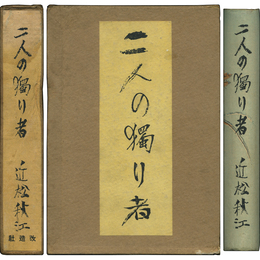 二人の獨り者 近松秋江
改造社
二人の獨り者
二人の獨り者 近松秋江